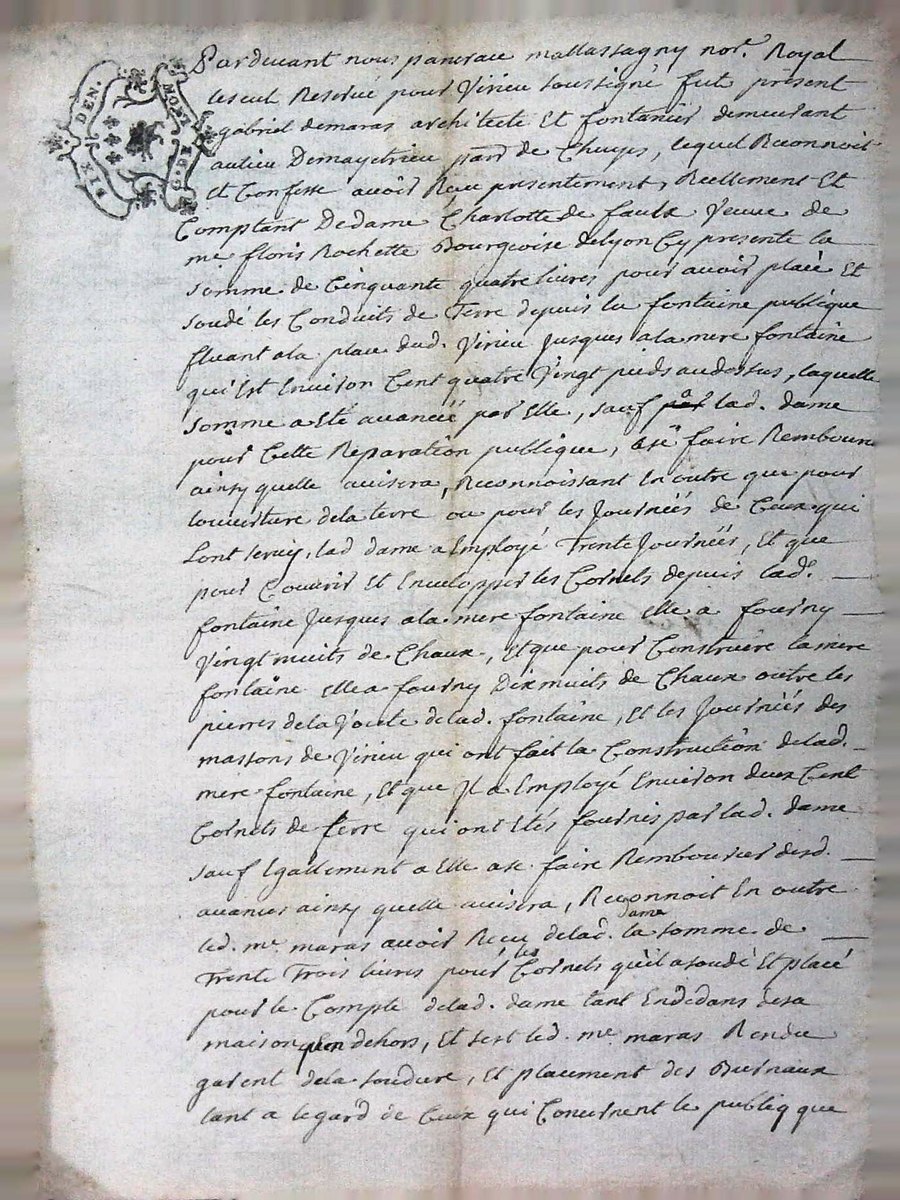 SIX DEN.
Pardevant nous pancrace mallassagny nore. Royal
lescul Reservé pour Virieu soussigné fut present
gabriel demaras architecte Et fontanier demeurant
au lieu De parr de Chuyes, lequel Reconnoit
Et Confesse avoir Reçu presentement, Reellement Et
Comptant De dame Charlotte de faulx Veuve de
me floris Rochette Bourgeoise de lyon Cy presente la
somme de Cinquante quatre livres pour avoir placé Et
soudé les Conduits de Terre depuis la fontaine publique
fluant a la place dud. Virieu Jusques a la mere fontaine
qui Est Environ Cent quatre Vingt pieds au dessus, laquelle
somme a Eté avancéé par Elle, sauf a lad. dame
pour Cette Reparation publique, a se faire Rembourcer
ainsy quelle avisera, Reconnoissant En outre que pour
louverture de la terre ou pour les Journéés de Ceux qui
Lont servy, lad dame a Employé Trente Journéés, Et que
pour Couvrir Et Envelopper les Cornets depuis lade.
fontaine Jusques a la mere fontaine Elle a fourny
Vingt muits de Chaux, Et que pour Construire la mere
fontaine Elle a fourny Dix muits de Chaux outre les
pierres de la Voute de lad. fontaine, Et les Journéés des
massons de Virieu qui ont fait la Construction de lad.
mere fontaine, Et que Jl a Employé Environ deux Cent
Cornets de terre qui ont Etés fournis par lad. dame
sauf Egallement a Elle a se faire Rembourser desd.
avances ainsy quelle avisera, Reconnoit En outre
led. me maras avoir Reçu de lad. dame la somme de
Trente Trois livres pour les Cornets qu'il a soudé Et placé
pour le Compte de lad. dame tant En dedans de sa
maison quen dehors, Et sest led. me maras Rendu
garent de la soudure, Et placement des Burnaux
tant a legard de Ceux qui Concernent le publiq que